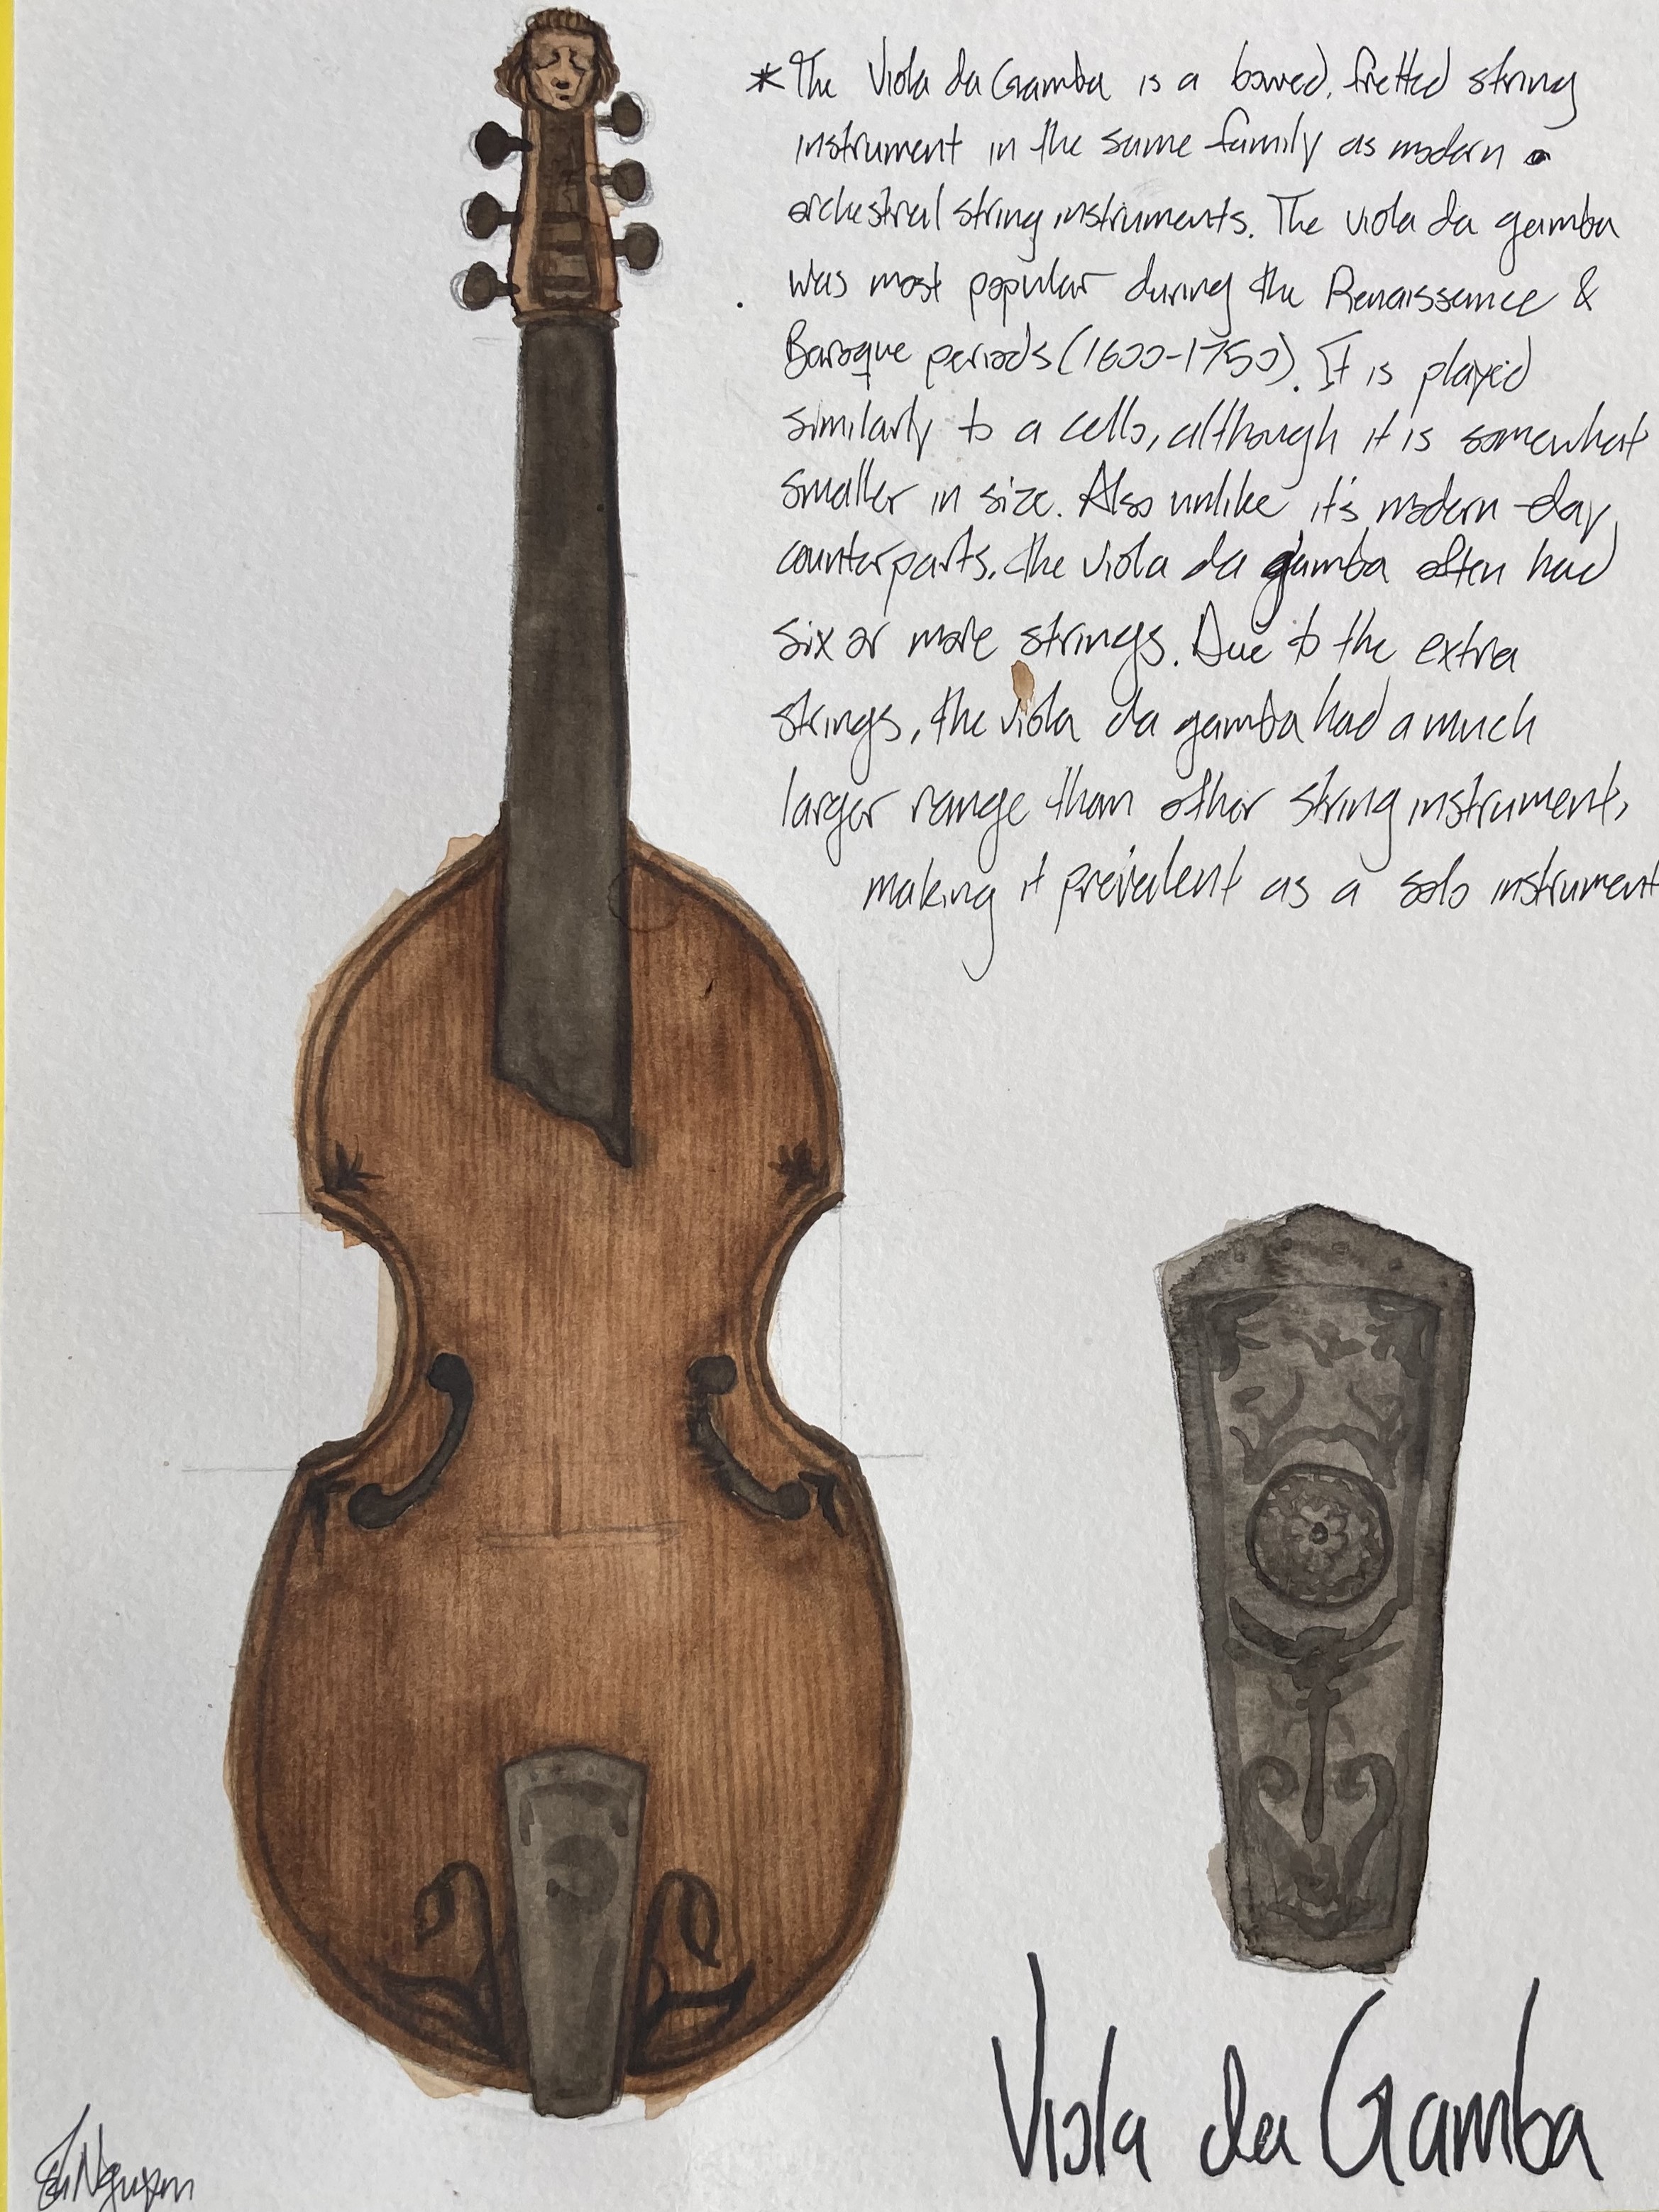 *The Viola da Gamba is a bowed, fretted string
instrument in the same family as modern
orchestral string instruments. The viola da gamba
was most popular during the Renaissance &
Baroque periods (1600-1750). It is played
similarly to a cello, although it is somewhat
smaller in size. Also unlike it's modern-day
counterparts, the viola da gamba often had
six or more strings. Due to the extra
strings, the viola da gamba had a much
larger range than other string instruments,
making it prevalent as a solo instrument
Viola da Gamba
Nguyen